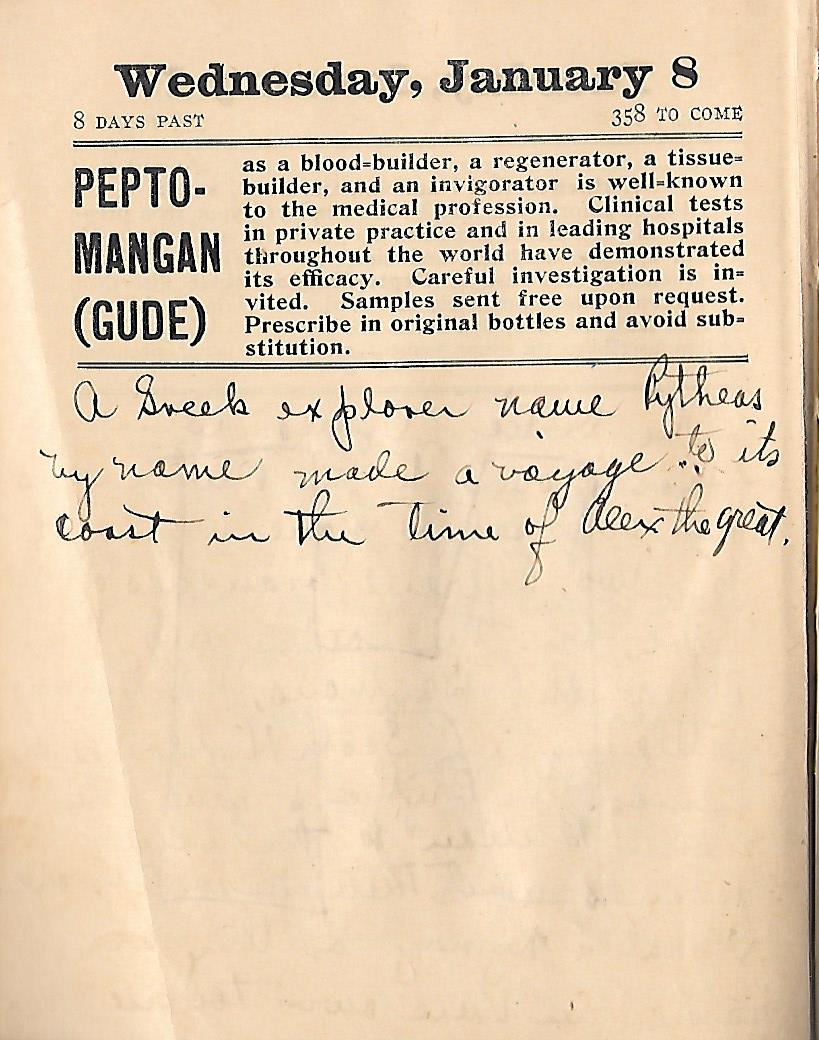 Wednesday, January 8
8 DAYS PAST 358 TO COME
PEPTO-
MANGAN
(GUDE)
as a blood=builder, a regenerator, a tissue=
builder, and an invigorator is well=known
to the medical profession. Clinical tests
in private practice and in leading hospitals
throughout the world have demonstrated
its efficacy. Careful investigation is in=
vited. Samples sent free upon request.
Prescribe in original bottles and avoid sub=
stitution.
A Greek explorer name Pytheas
by name made a voyage to its
coast in the time of Alex the great.